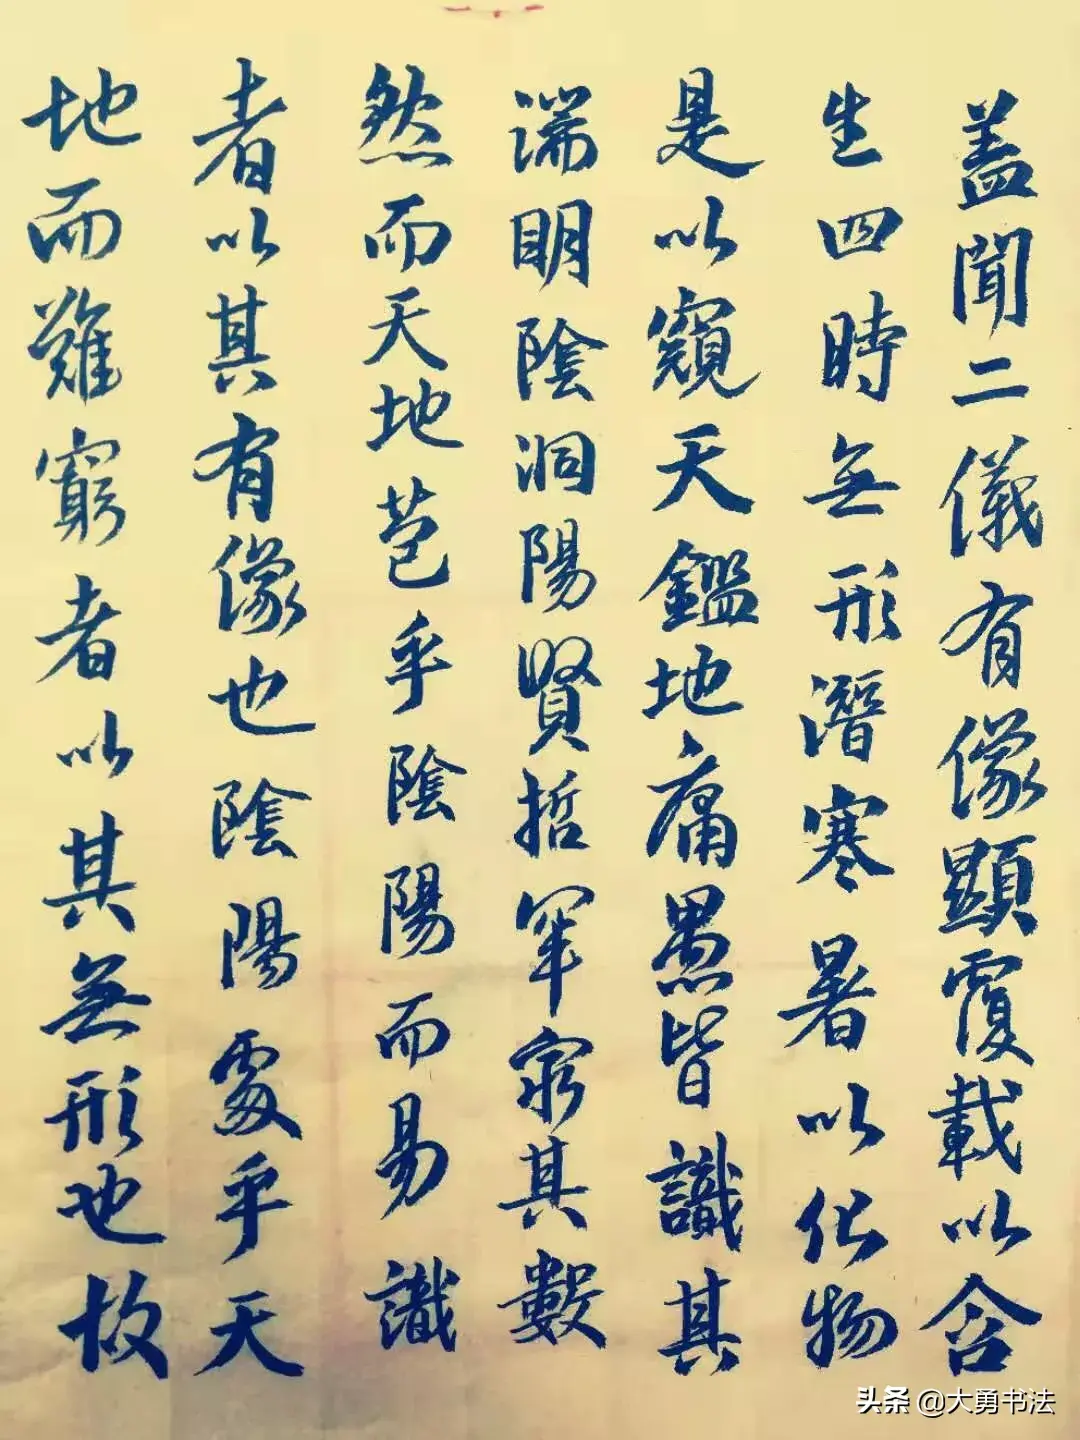 盖聞二儀有像顯覆載以含
生四時無形潛寒暑以化物
是以窺天鑑地庸愚皆識其
湍明陰洞陽賢哲罕窮其數
然而天地苞乎陰陽而易識
者以其有像也陰陽處乎天
地而難窮者以其無形也故
头条 @大勇书法